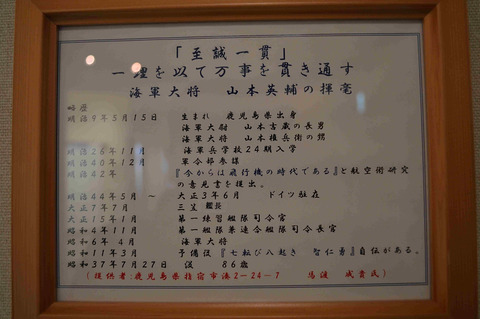 「至誠一貫」
一理を以て万事を貫き通す
海軍大将 山本英輔の揮毫
略歴
明治9年5月15日 生まれ 鹿児島県出身
海軍大尉 山本吉蔵の長男
海軍大将 山本権兵衛の甥
明治26年11月 海軍兵学校24期入学
明治40年12月 軍令部参謀
明治42年 『今からは飛行機の時代である』と航空術研究
の意見書を提出。
明治44年5月 ~ 大正3年6月 ドイツ駐在
大正7年7月 三笠 艦長
大正15年1月 第一練習艦隊司令官
昭和4年11月 第一艦隊兼連合艦隊司令長官
昭和6年4月 海軍大将
昭和11年3月 予備役 『七転び八起き 智仁勇』自伝がある。
昭和37年7月27日 没 86歳
(提供者:鹿児島県指宿市湊2-24-7 馬渡 成貴氏)